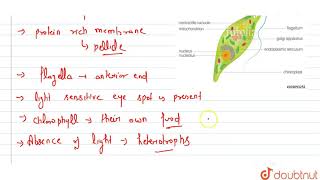 → protein rich membrane
↳ pellicle
→ flagella → anterior end
→ light sensitive eye spot is present
→ chlorophyll → their own food
→ Absence of light → heterotrophs
contractile vacuole
mitochondrion
nucleus
nucleolus
flagellum
golgi apparatus
endoplasmic reticulum
chloroplast
doubtnut